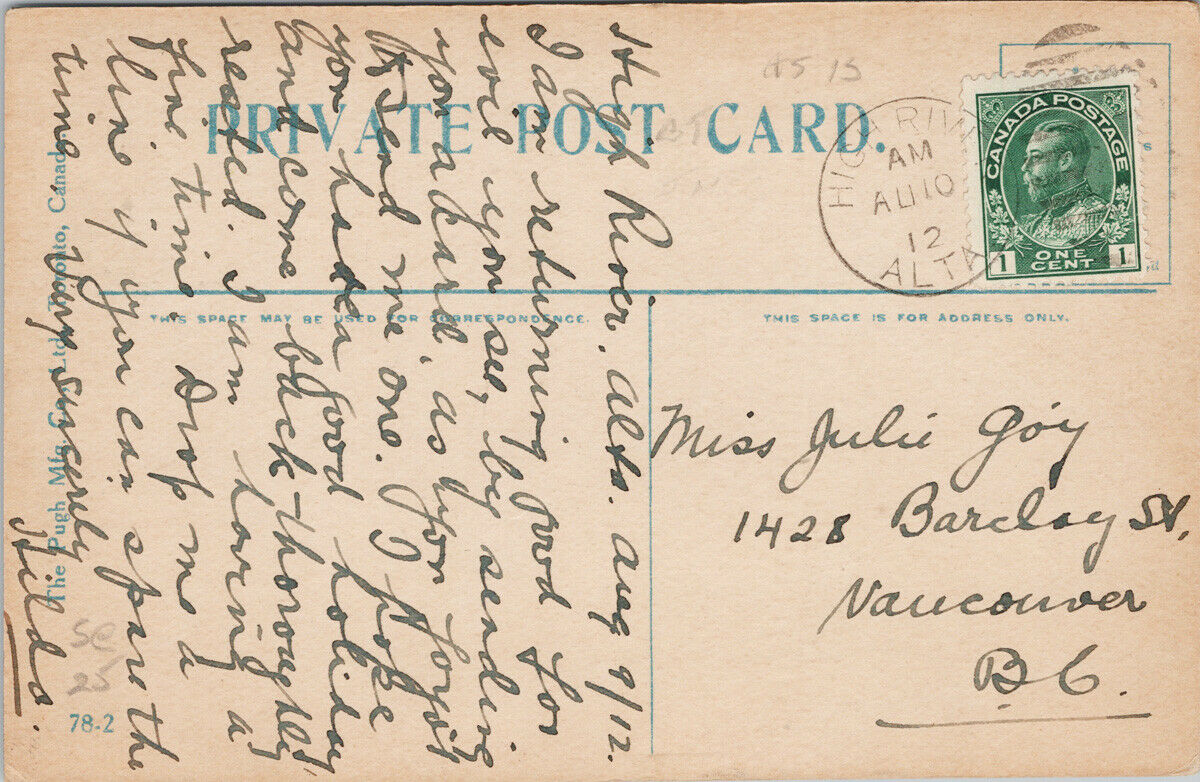 PRIVATE POST CARD.
HIGH RIVER
AM
AU 10
12
ALTA
CANADA POSTAGE
1 ONE CENT 1
THIS SPACE MAY BE USED FOR CORRESPONDENCE.
THIS SPACE IS FOR ADDRESS ONLY.
High River. Alta. Aug 9/12.
I am returning good for
evil you see, by sending
you a card, as you forgot
to send me one. I hope
you had a good holiday
and come back thoroughly
rested. I am having a
fine time. Drop me a
line if you can spare the
time. Very sincerely
Hilda.
Miss Julie Goy
1428 Barclay St,
Vancouver
B.C.
The Pugh Mfg Co., Ltd. Toronto, Canada
78-2
SC
25
15